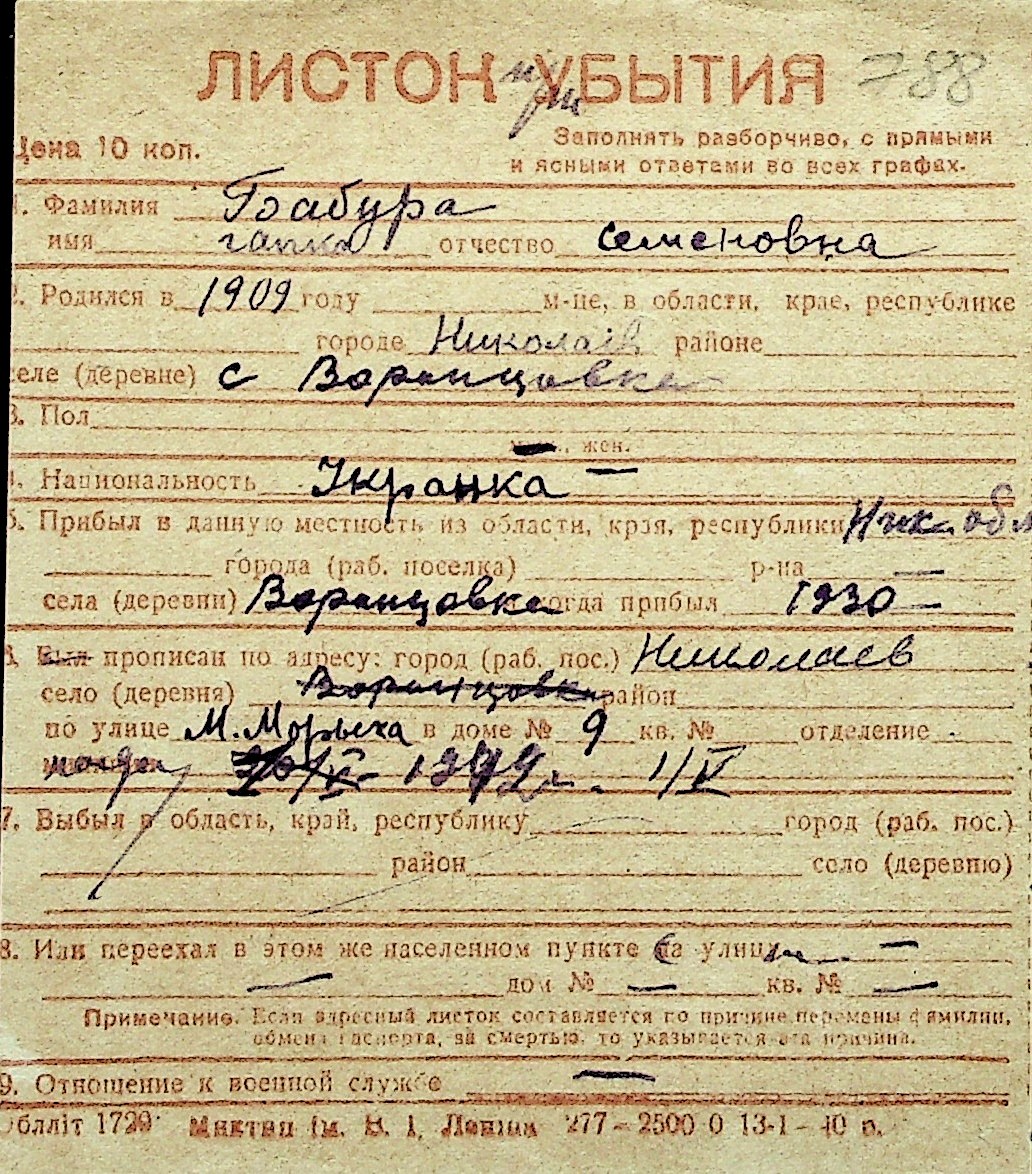 ЛИСТОК УБЫТИЯ 788
при
Цена 10 коп.
Заполнять разборчиво, с прямыми
и ясными ответами во всех графах.
1. Фамилия Бабура
имя гапка отчество семеновна
2. Родился в 1909 году м-це, в области, крае, республике
городе Николаев районе
селе (деревне) с Воронцовка
3. Пол
муж., жен.
4. Национальность Укранка
5. Прибыл в данную местность из области, края, республики Ник. обл
города (раб. поселка) р-на
села (деревни) Воронцовка когда прибыл 1930
6. Был прописан по адресу: город (раб. пос.) Николаев
село (деревня) Воронцовка район
по улице М. Морьска в доме № 9 кв. № отделение
1942 г. 1/V
7. Выбыл в область, край, республику город (раб. пос.)
район село (деревню)
8. Или переехал в этом же населенном пункте на улицу
дом № кв. №
Примечание. Если адресный листок составляется по причине перемены фамилии,
обмена паспорта, за смертью, то указывается эта причина.
9. Отношение к военной службе
Обліт 1720 Миктип ім. В. І. Леніна 277-2500 0 13-1-40 р.